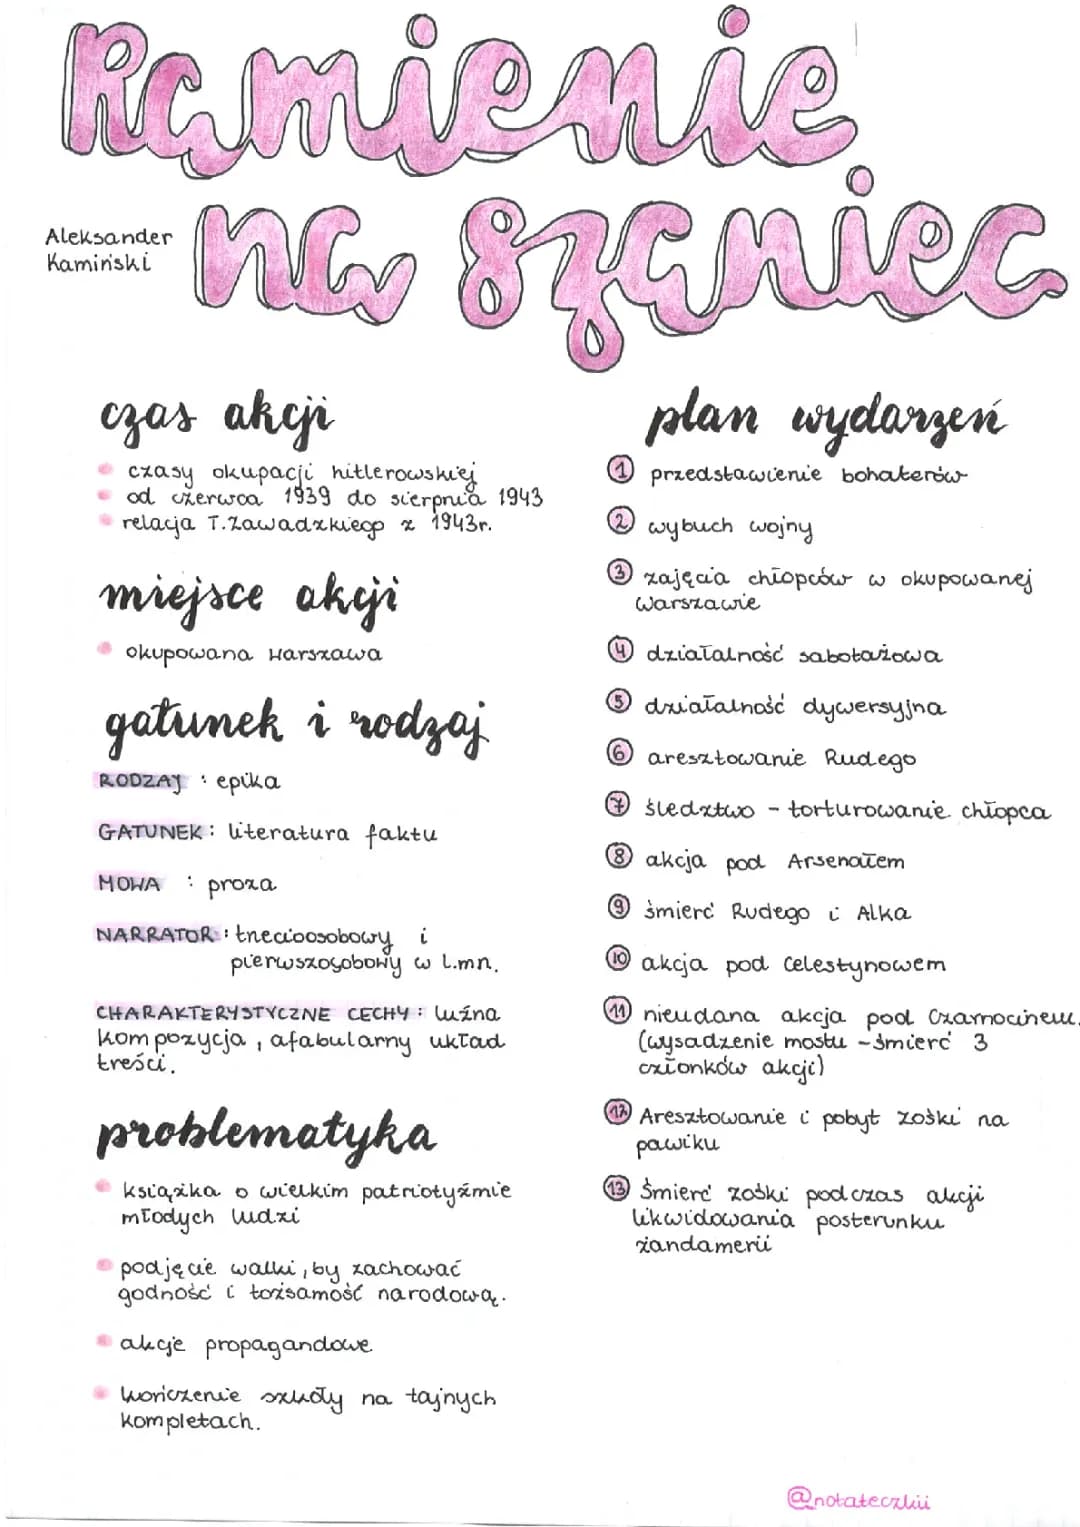 Kamienie
na szaniec
Aleksander
Kamiński
czas akcji
czasy okupacji hitlerowskiej
od czerwca 1939 do sierpnia 1943
relacja T.Zawadzkiego z 1943r.
miejsce akcji
okupowana Warszawa
gatunek i rodzaj
RODZAJ : epika
GATUNEK: literatura faktu
MOWA : proza
NARRATOR: trzecioosobowy i
pierwszosobowy w l.mn.
CHARAKTERYSTYCZNE CECHY: luźna
kompozycja, afabularny układ
treści.
problematyka
książka o wielkim patriotyźmie
młodych ludzi
podjęcie walki, by zachować
godność i tożsamość narodową.
akcje propagandowe
kończenie szkoły na tajnych
kompletach.
plan wydarzeń
1 przedstawienie bohaterów
2 wybuch wojny
3 zajęcia chłopców w okupowanej
Warszawie
4 działalność sabotażowa
5 działalność dywersyjna
6 aresztowanie Rudego
7 śledztwo - torturowanie chłopca
8 akcja pod Arsenałem
9 śmierć Rudego i Alka
10 akcja pod Celestynowem
11 nieudana akcja pod Czarnocinem.
(wysadzenie mostu - śmierć 3
członków akcji)
12 Aresztowanie i pobyt Zośki na
pawiku
13 Śmierć Zośki podczas akcji
likwidowania posterunku
żandamerii
@notateczkii